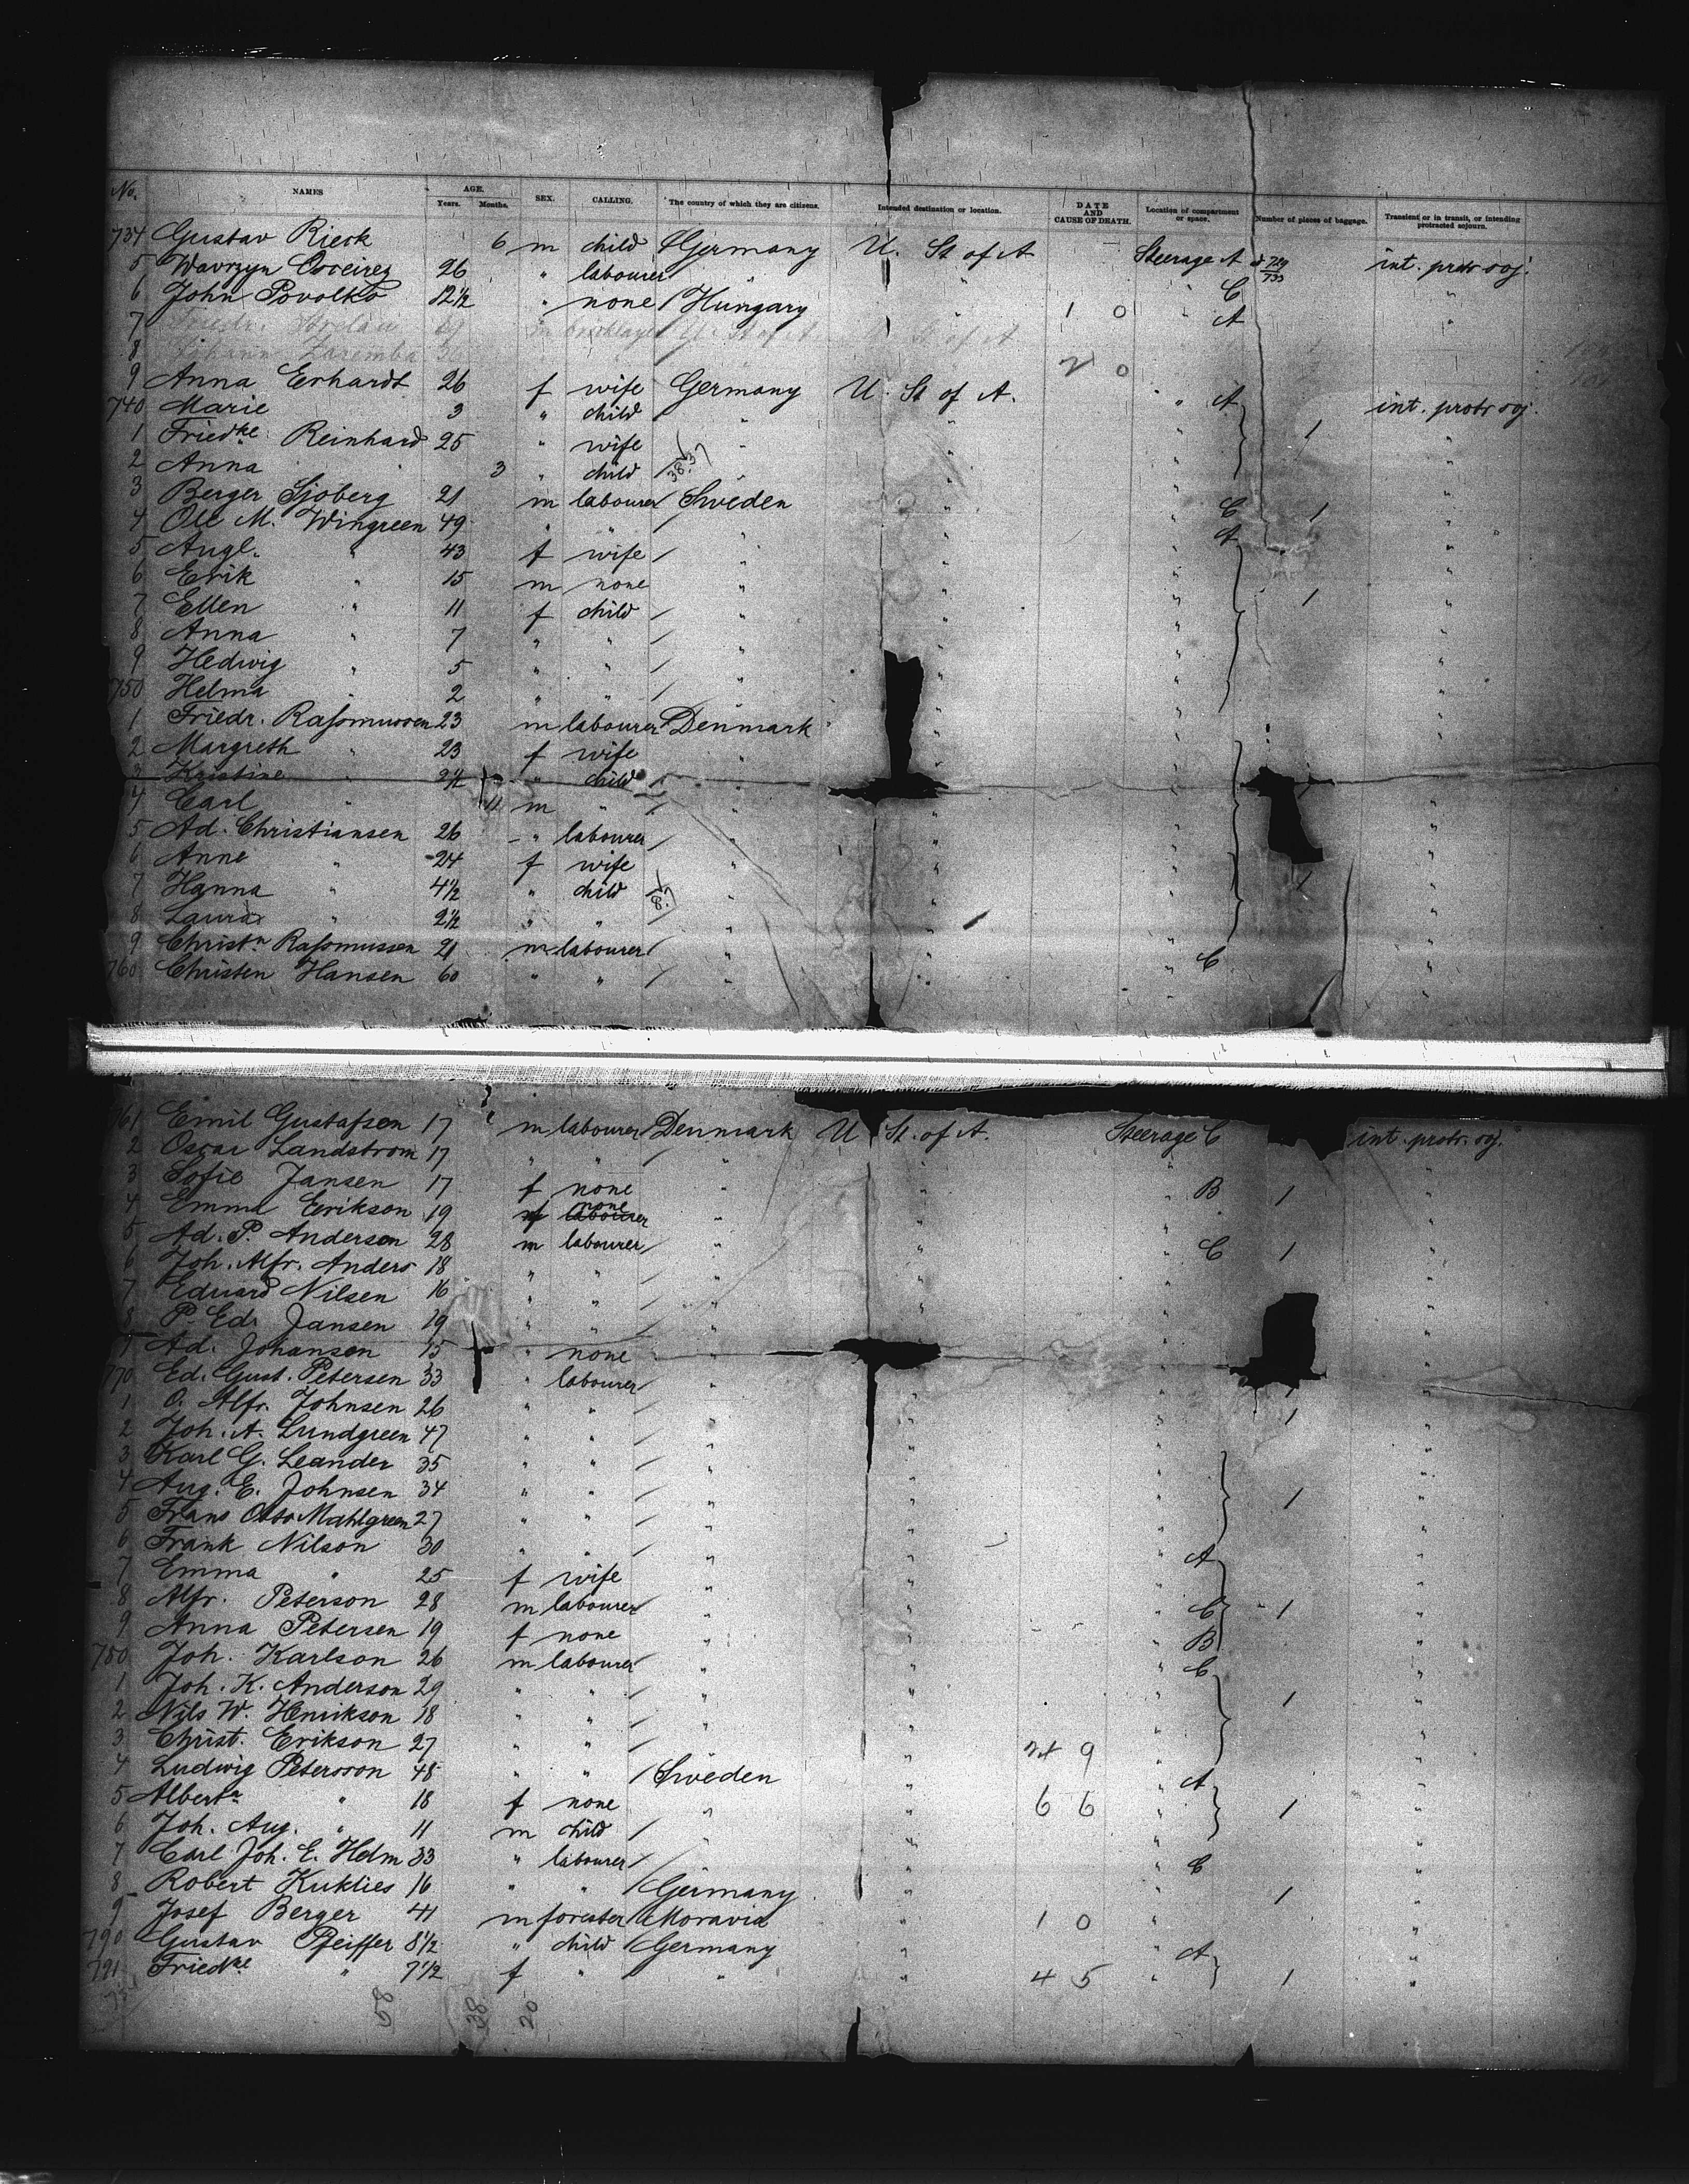 No. NAMES AGE. Years. Months. SEX. CALLING. The country of which they are citizens. Intended destination or location. DATE AND CAUSE OF DEATH. Location of compartment or space. Number of pieces of baggage. Transient or in transit, or intending protracted sojourn.
734 Gustav Rieck 6 m child Germany U. St of A Steerage A 729/733 int. protr soj.
5 26 " labourer " C "
6 John Povolko 12½ " none Hungary " 1 0 " A "
7 m bricklayer U. St of A. U. St of A
8 Johann Zaremba 2 0
9 Anna Erhardt 26 f wife Germany U. St of A. " A int. protr soj.
740 Marie 3 " child " " "
1 Friedke Reinhard 25 " wife " " " 1 "
2 Anna 3 " child " " " "
3 Berger Sjoberg 21 m labourer Sweden " " C 1 "
4 Ole M. Wingreen 49 " " " " " A "
5 Augl. " 43 f wife " " " "
6 Erik " 15 m none " " " "
7 Ellen " 11 f child " " " 1 "
8 Anna " 7 " " " " " "
9 Hedwig " 5 " " " " " "
750 Helma " 2 " " " " " "
1 Friedr. Rassmussen 23 m labourer Denmark " " "
2 Margreth " 23 f wife " " " "
3 Kristine " 2½ " child " " " "
4 Carl " 11 m " " " " "
5 Ad. Christiansen 26 " labourer " " " "
6 Anne " 24 f wife " " " "
7 Hanna " 4½ " child " " " 1 "
8 Laura " 2½ " " " " " "
9 Christn Rassmussen 21 m labourer " " " "
760 Christen Hansen 60 " " " " " C "
761 Emil Gustafsen 17 m labourer Denmark U. St. of A. Steerage C int. protr. soj.
2 Oscar Landstrom 17 " " " " " "
3 Sofie Jansen 17 f none " " " B 1 "
4 Emma Erikson 19 f none labourer " " " "
5 Ad. P. Andersen 28 m labourer " " " C 1 "
6 Joh. Alfr. Anders 18 " " " " " "
7 Eduard Nilsen 16 " " " " " "
8 P. Ed. Jansen 19 " " " " " "
9 Ad. Johansen 15 " none " " "
770 Ed. Gust. Petersen 33 " labourer " " " 1 "
1 O. Alfr. Johnsen 26 " " " " " 1 "
2 Joh. A. Lundgreen 47 " " " " " "
3 Karl G. Leander 35 " " " " " "
4 Aug. E. Johnsen 34 " " " " " 1 "
5 Frans Otto Mahlgreen 27 " " " " " "
6 Frank Nilson 30 " " " " " A "
7 Emma " 25 f wife " " " "
8 Alfr. Peterson 28 m labourer " " " C 1 "
9 Anna Petersen 19 f none " " " B "
780 Joh. Karlson 26 m labourer " " " C "
1 Joh. K. Anderson 29 " " " " " 1 "
2 Nils W. Henrikson 18 " " " " " "
3 Christ. Erikson 27 " " " 9 " "
4 Ludwig Petersson 48 " " Sweden " " A "
5 Alberta " 18 f none " " 6 6 " 1 "
6 Joh. Aug. " 11 m child " " " "
7 Carl Joh. E. Helm 33 " labourer " " " C "
8 Robert Kuklies 16 " " Germany " " 1 "
9 Josef Berger 41 m forester Moravia " 1 0 " "
790 Gustav Pfeiffer 8½ " child Germany " " A "
791 Friedke " 7½ f " " " 4 5 " 1 "
58 38 20